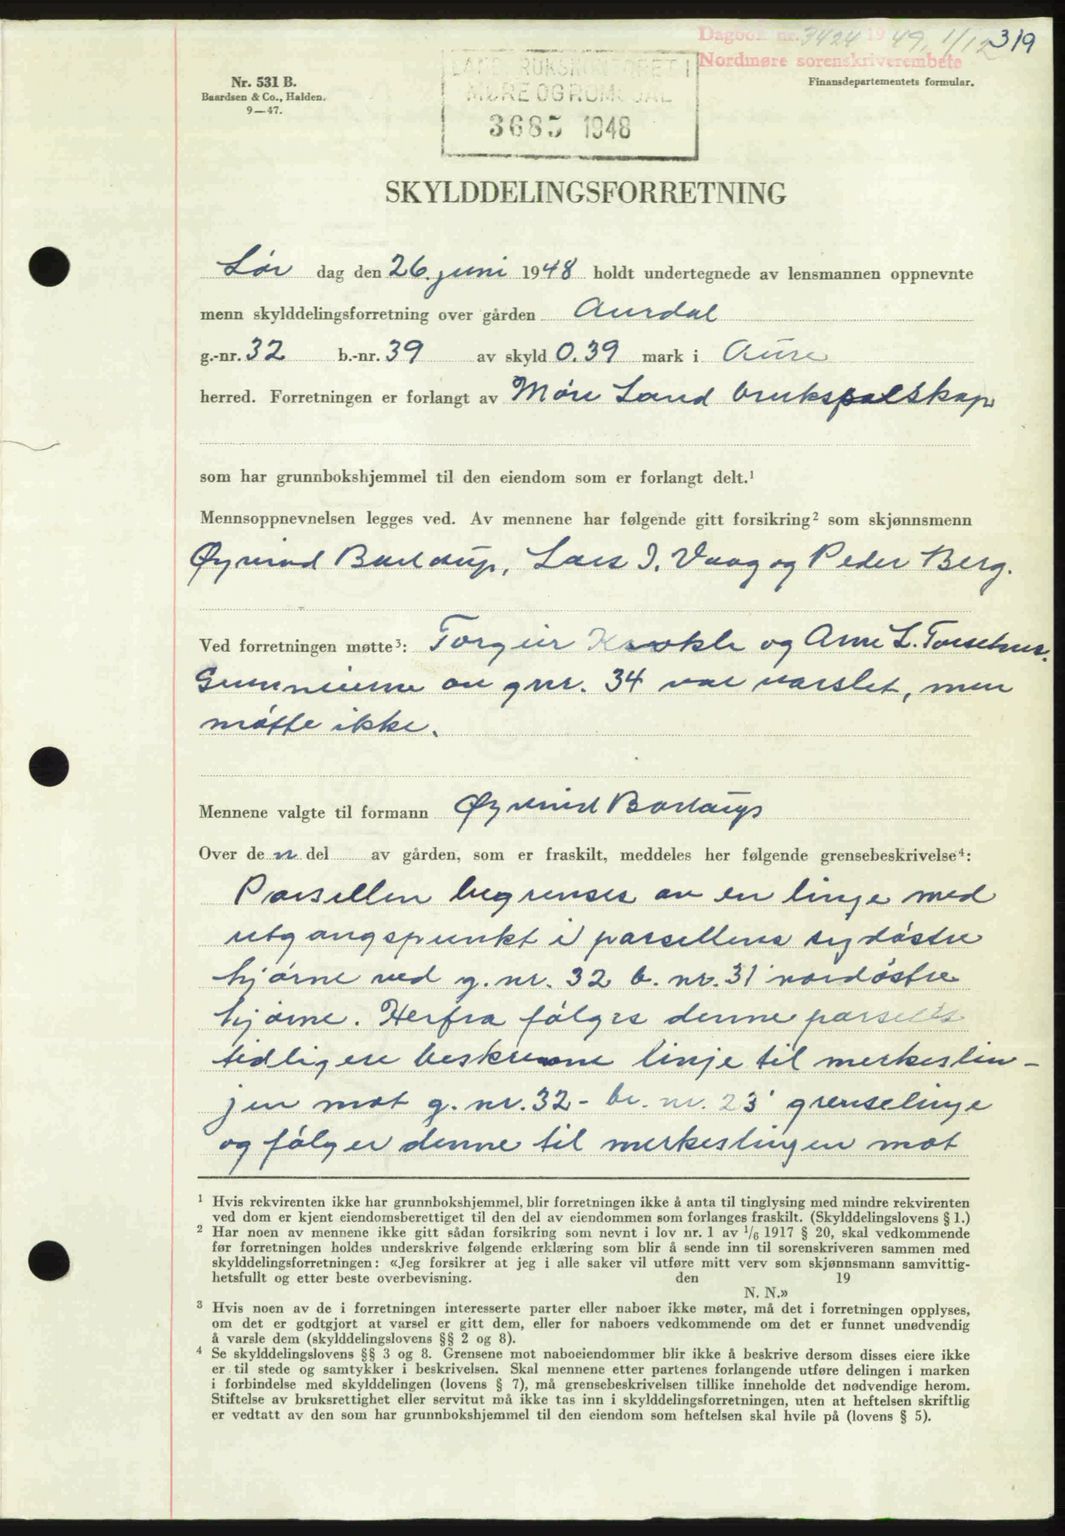 Dagbok nr. 3424 1949, 1/12 319
Nordmøre sorenskriverembete
Nr. 531 B.
Baardsen & Co., Halden.
9—47.
Finansdepartementets formular.
LANDBRUKSKONTORET I
MØRE OG ROMSDAL
3685 1948
SKYLDDELINGSFORRETNING
Lør dag den 26. juni 1948 holdt undertegnede av lensmannen oppnevnte
menn skylddelingsforretning over gården Aurdal
g.-nr. 32 b.-nr. 39 av skyld 0.39 mark i Aure
herred. Forretningen er forlangt av Møre Landbrukselskap
som har grunnbokshjemmel til den eiendom som er forlangt delt.¹
Mennsoppnevnelsen legges ved. Av mennene har følgende gitt forsikring² som skjønnsmenn
Øyvind Bastrup, Lars I. Vaag og Peder Berg.
Ved forretningen møtte³: Torgeir og Arne L.
av gnr. 34 var varslet, men
møtte ikke.
Mennene valgte til formann Øyvind
Over den del av gården, som er fraskilt, meddeles her følgende grensebeskrivelse⁴:
Parsellen begrenses av en linje med
utgangspunkt i parsellens sydøstre
hjørne ved g. nr. 32 b. nr. 31 nordøstre
hjørne. Herfra følges denne parsells
tidligere beskrevne linje til merkeslin-
jen mot g. nr. 32 - br. nr. 23 grenselinje
og følger denne til merkeslinjen mot
¹ Hvis rekvirenten ikke har grunnbokshjemmel, blir forretningen ikke å anta til tinglysing med mindre rekvirenten
ved dom er kjent eiendomsberettiget til den del av eiendommen som forlanges fraskilt. (Skylddelingslovens § 1.)
² Har noen av mennene ikke gitt sådan forsikring som nevnt i lov nr. 1 av 1/6 1917 § 20, skal vedkommende
før forretningen holdes underskrive følgende erklæring som blir å sende inn til sorenskriveren sammen med
skylddelingsforretningen: «Jeg forsikrer at jeg i alle saker vil utføre mitt verv som skjønnsmann samvittig-
hetsfullt og etter beste overbevisning. den 19
N. N.»
³ Hvis noen av de i forretningen interesserte parter eller naboer ikke møter, må det i forretningen opplyses,
om det er godtgjort at varsel er gitt dem, eller for naboers vedkommende om det er funnet unødvendig
å varsle dem (skylddelingslovens §§ 2 og 8).
⁴ Se skylddelingslovens §§ 3 og 8. Grensene mot naboeiendommer blir ikke å beskrive dersom disses eiere ikke
er til stede og samtykker i beskrivelsen. Skal mennene etter partenes forlangende utføre delingen i marken
i forbindelse med skylddelingen (lovens § 7), må grensebeskrivelsen tillike inneholde det nødvendige herom.
Stiftelse av bruksrettighet eller servitut må ikke tas inn i skylddelingsforretningen, uten at heftelsen skriftlig
er vedtatt av den som har grunnbokshjemmel til den eiendom som heftelsen skal hvile på (lovens § 5).